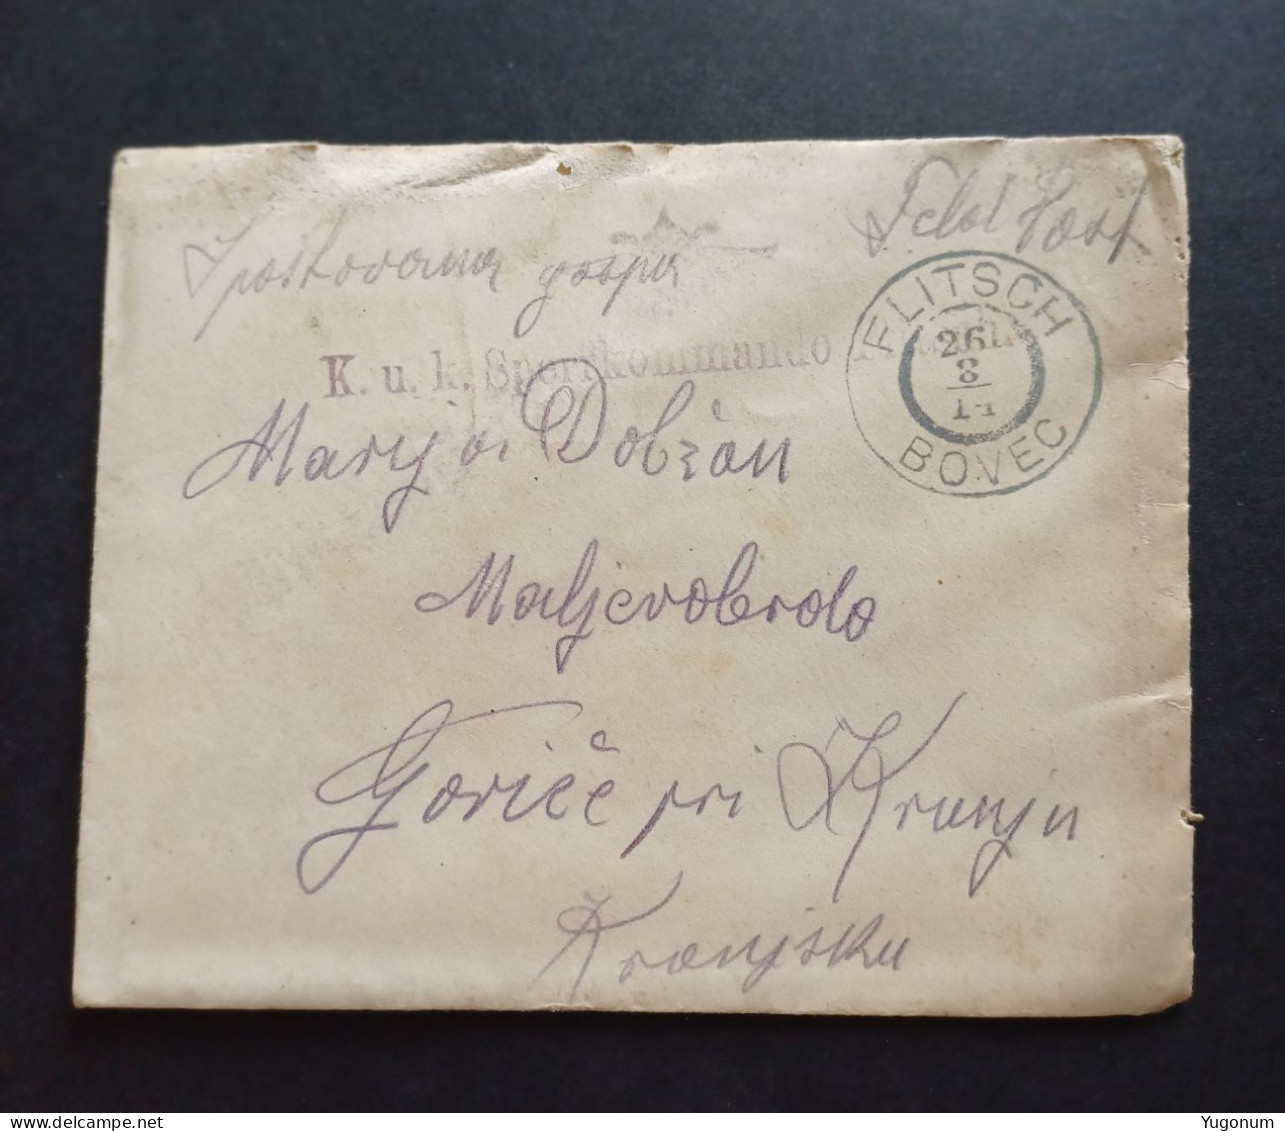 Feld Post
Spoštovana gospa
K. u. k. Sperrkommando
FLITSCH
26
8
14
BOVEC
Marija Dobžan
Maljevobrdo
Goriče pri Kranju
Kranjsku
Yugonum
delcampe.net